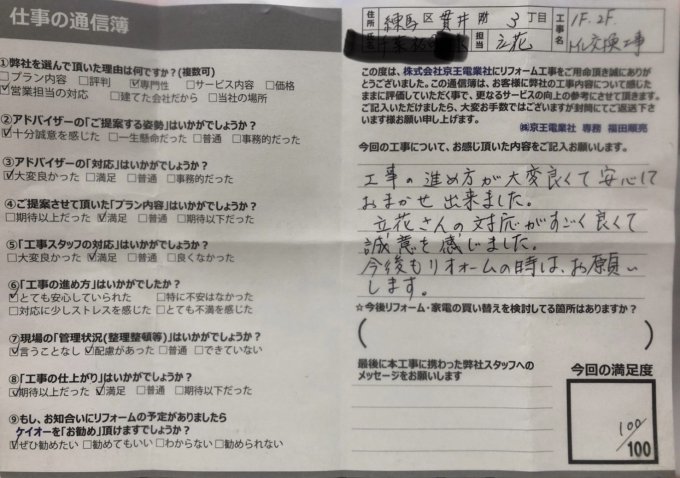 仕事の通信簿
①弊社を選んで頂いた理由は何ですか?(複数可)
□プラン内容 □評判 ☑専門性 □サービス内容 □価格
☑営業担当の対応 □建てた会社だから □当社の場所
②アドバイザーの「ご提案する姿勢」はいかがでしょうか?
☑十分誠意を感じた □一生懸命だった □普通 □事務的だった
③アドバイザーの「対応」はいかがでしょうか?
☑大変良かった □満足 □普通 □事務的だった
④ご提案させて頂いた「プラン内容」はいかがでしょうか?
□期待以上だった ☑満足 □普通 □期待以下だった
⑤「工事スタッフの対応」はいかがでしょうか?
□大変良かった ☑満足 □普通 □良くなかった
⑥「工事の進め方」はいかがでしたか?
☑とても安心していられた □特に不安はなかった
□対応に少しストレスを感じた □とても不満を感じた
⑦現場の「管理状況(整理整頓等)」はいかがですか?
☑言うことなし ☑配慮があった □普通 □できていない
⑧「工事の仕上がり」はいかがでしょうか?
☑期待以上だった ☑満足 □普通 □期待以下だった
⑨もし、お知合いにリフォームの予定がありましたら
ケイオーを「お勧め」頂けますでしょうか?
☑ぜひ勧めたい □勧めてもいい □わからない □勧められない
住所 練馬区貫井 3丁目
担当 立花
工事名 1F.2F. トイレ交換工事
この度は、株式会社京王電業社にリフォーム工事をご用命頂き誠にありが
とうございました。この通信簿は、お客様に弊社の工事内容について感じた
ままに評価していただく事で、更なるサービスの向上の参考にさせて頂きます。
ご記入いただけましたら、大変お手数ではございますが封筒にてご返送下さ
います様お願い申し上げます。
㈱京王電業社 専務 福田順亮
今回の工事について、お感じ頂いた内容をご記入お願いします。
工事の進め方が大変良くて安心して
おまかせ出来ました。
立花さんの対応がすごく良くて
誠意を感じました。
今後もリフォームの時は、お願い
します。
☆今後リフォーム・家電の買い替えを検討してる箇所はありますか?
( )
最後に本工事に携わった弊社スタッフへの
メッセージをお願いします
今回の満足度
100/100